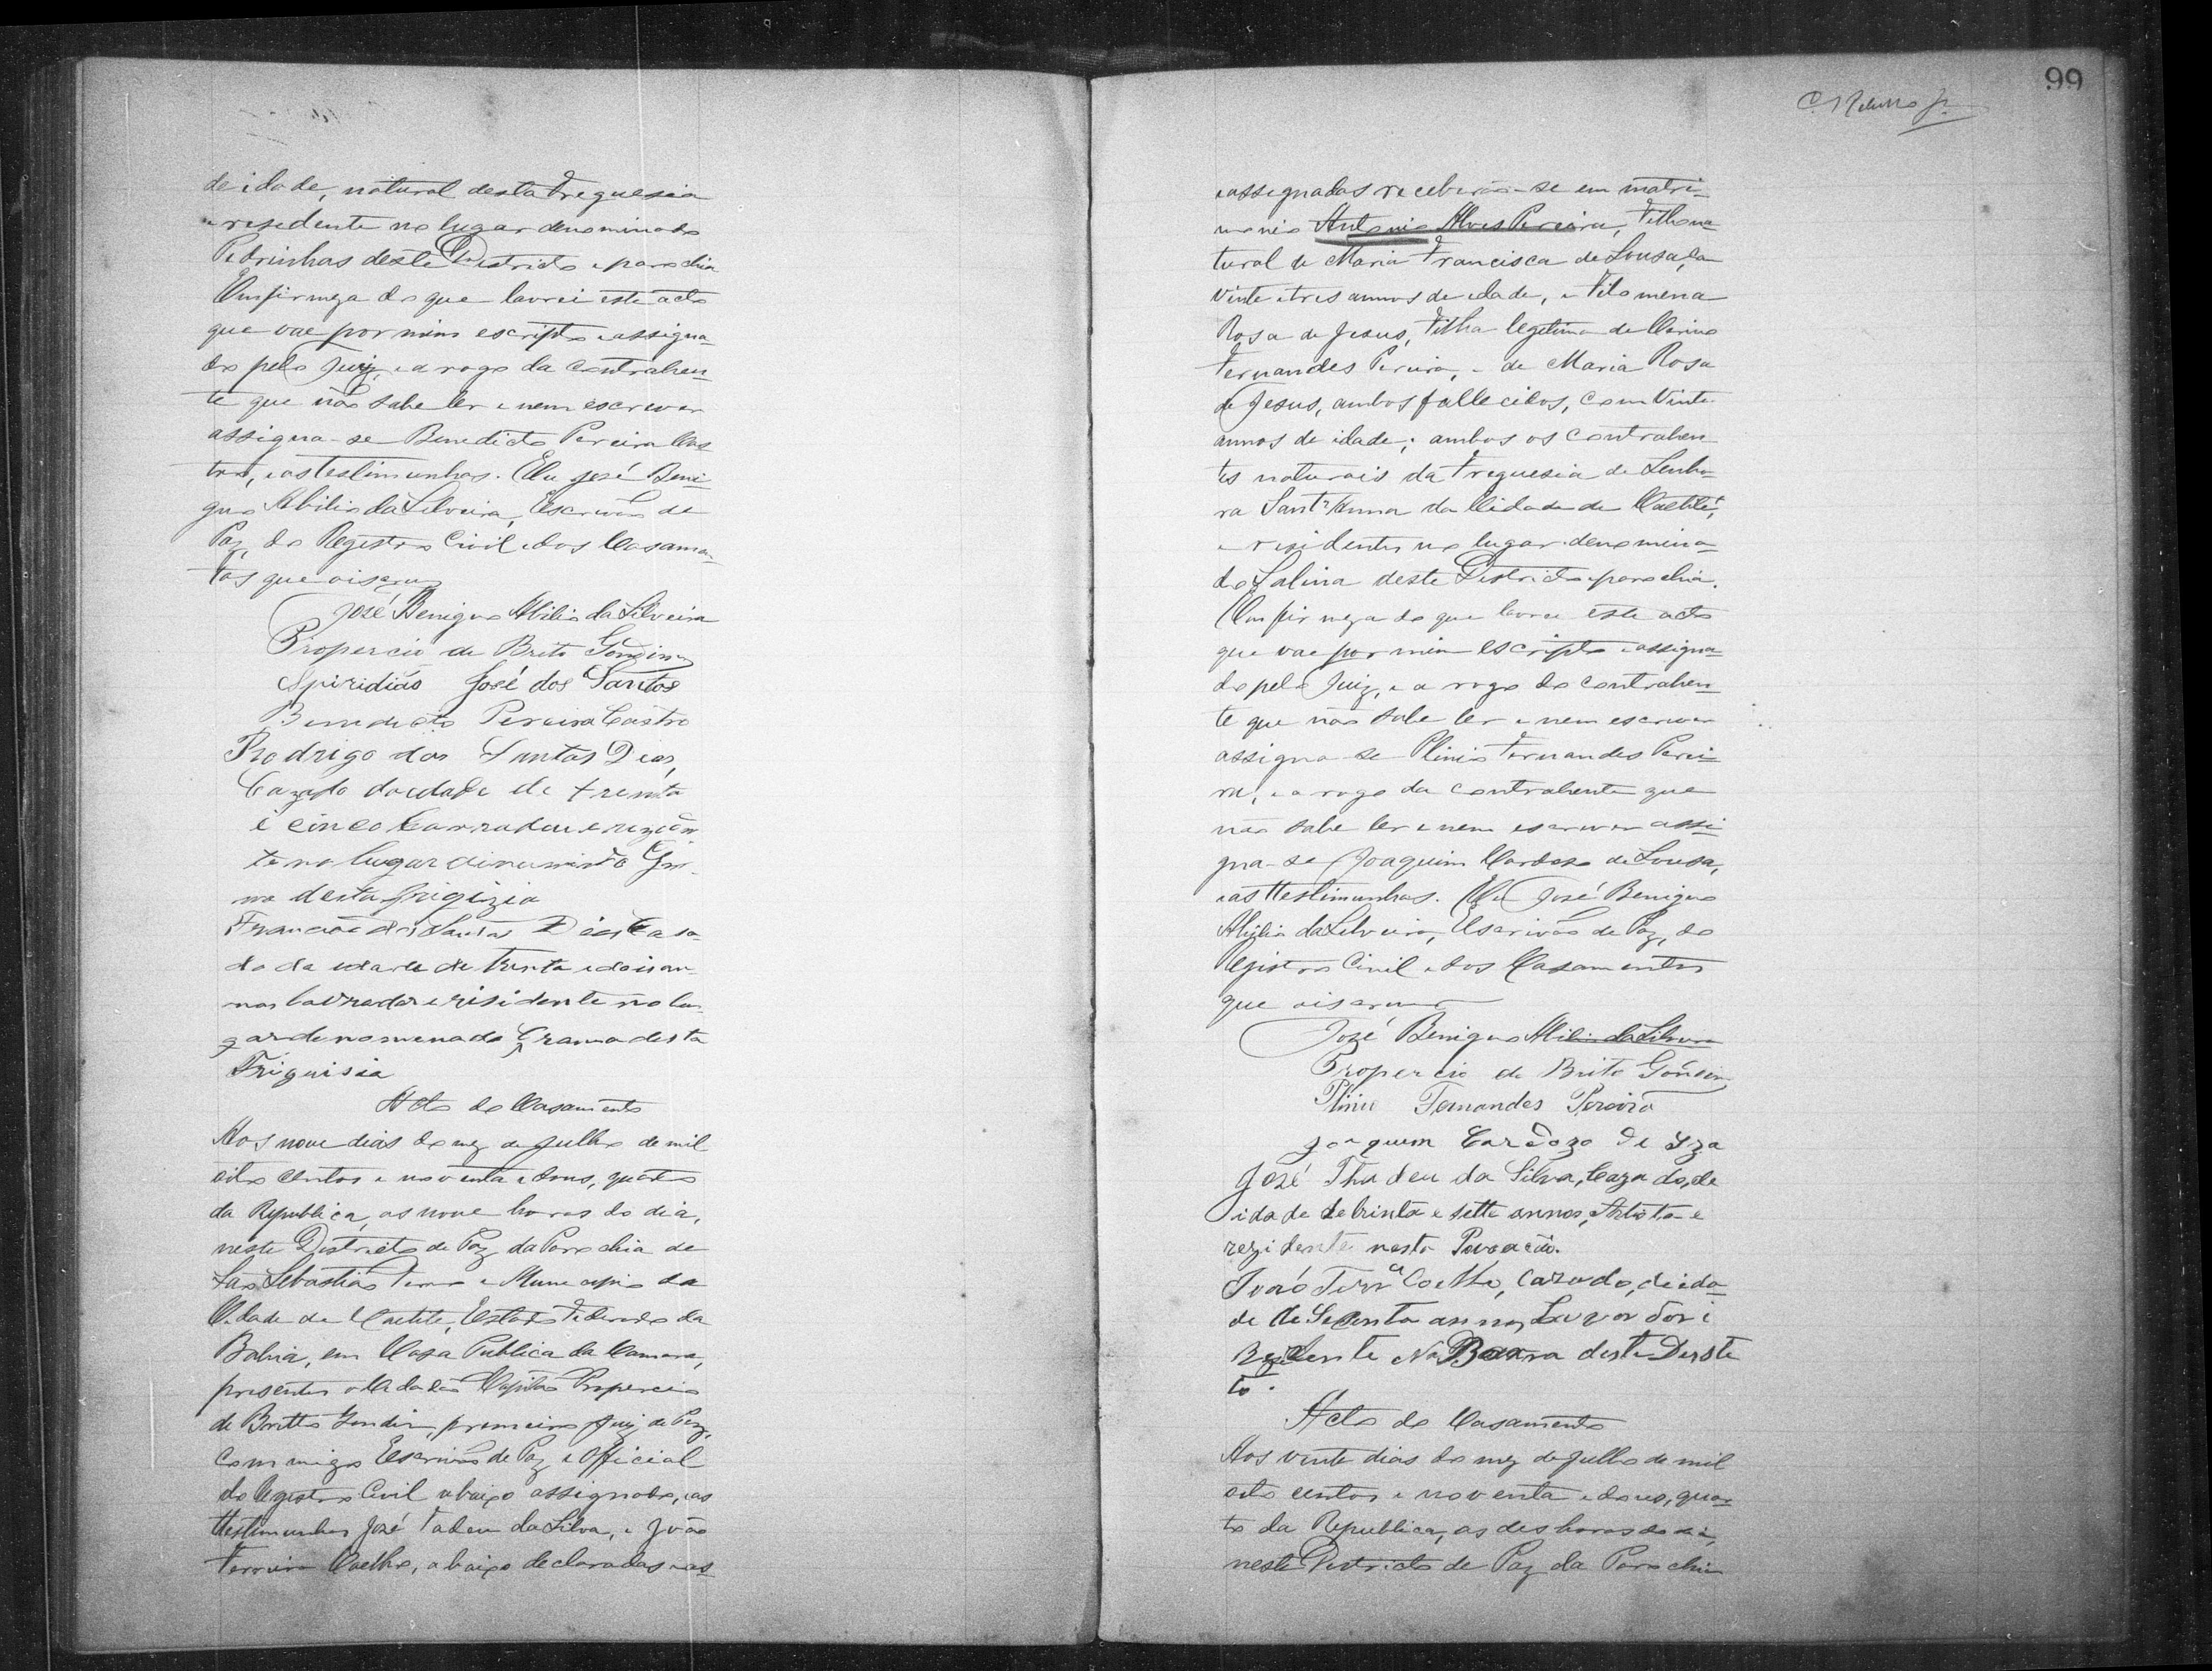 de idade, natural desta Freguesia
e residente no lugar denominado
Pedrinhas deste Districto e parochia
Em firmeza do que lavrei este acto
que vae por mim escripto e assigna-
do pelo Juiz, e a rogo da contrahen-
te que não sabe ler e nem escrever
assigna-se Benedicto Pereira Cas-
tro, e as testimunhas. Eu José Beni-
gno Abilio da Silveira, Escrivão de
Paz, do Registro Civil e dos Casamen-
tos que o escrevy
José Benigno Abilio da Silveira
Propercio de Brito Gondim
Spiridião José dos Santos
Benedicto Pereira Castro
Rodrigo dos Santos Dias,
Cazado da edade de trenta
e cinco
te no lugar
ma desta frigizia
dos Santos Dias Casa-
do da edade de trenta e dois an-
nos lavrador e risidente no lu-
gar denomenado Grama desta
Friguisia
Acto do Casamento
Aos nove dias do mez de Julho de mil
oito centos e noventa e dous, quarto
da Republica, as nove horas do dia,
neste Districto de Paz da Parochia de
São Sebastião Termo e Municipio da
Cidade de Caetité, Estado Federado da
Bahia, em Casa Publica da Camara,
presentes o Cidadão Capitão Propercio
de Britto Gondim, premeiro Juiz de Paz,
commigo Escrivão de Paz e Official
do Registro Civil abaixo assignado, e as
testimunhas José Tadeu da Silva, e João
Ferreira Coelho, abaixo declaradas e as-
99
eassignadas receberão-se em matri-
monio Antonio Alves Pereira, Filho na-
tural de Maria Francisca de Sousa, com
vinte e tres annos de edade, e Filomena
Rosa de Jesus, Filha legitima de
Fernandes Pereira, e de Maria Rosa
de Jesus, ambos fallecidos, com vinte
annos de idade; ambos os contrahen-
tes naturais da Freguesia de Senho-
ra Sant'Anna da Cidade de Caetité,
e residentes no lugar denomina-
do Salina deste Districto e parochia.
Em firmeza do que lavrei este acto
que vae por mim escripto e assigna-
do pelo Juiz, e a rogo do contrahen-
te que não sabe ler e nem escrever
assigna-se Plinio Fernandes Perei-
ra, e a rogo da contrahente que
não sabe ler e nem escrever assi-
gna-se Joaquim Cardoso de Sousa,
e as ttestimunhas. Eu José Benigno
Abilio da Silveira, Escrivão de Paz, do
Registro Civil e dos Casamentos
que o escrevy
José Benigno Abilio da Silveira
Propercio de Brito Gondim
Plinio Fernandes Pereira
Joaquim Cardozo de Sza
José Thadeu da Silva, Cazado, de
idade de trinta e sette annos, Artista e
rezidente nesta Povoação.
João Ferrª Coelho, Cazado, de ida-
de de Secenta annos, Lavrador i
Rezidente Na Barra deste Destr
to.
Acto do Casamento
Aos vinte dias do mez de Julho de mil
oito centos e noventa e dous, quar-
to da Republica, as des horas do dia,
neste Districto de Paz da Parochia